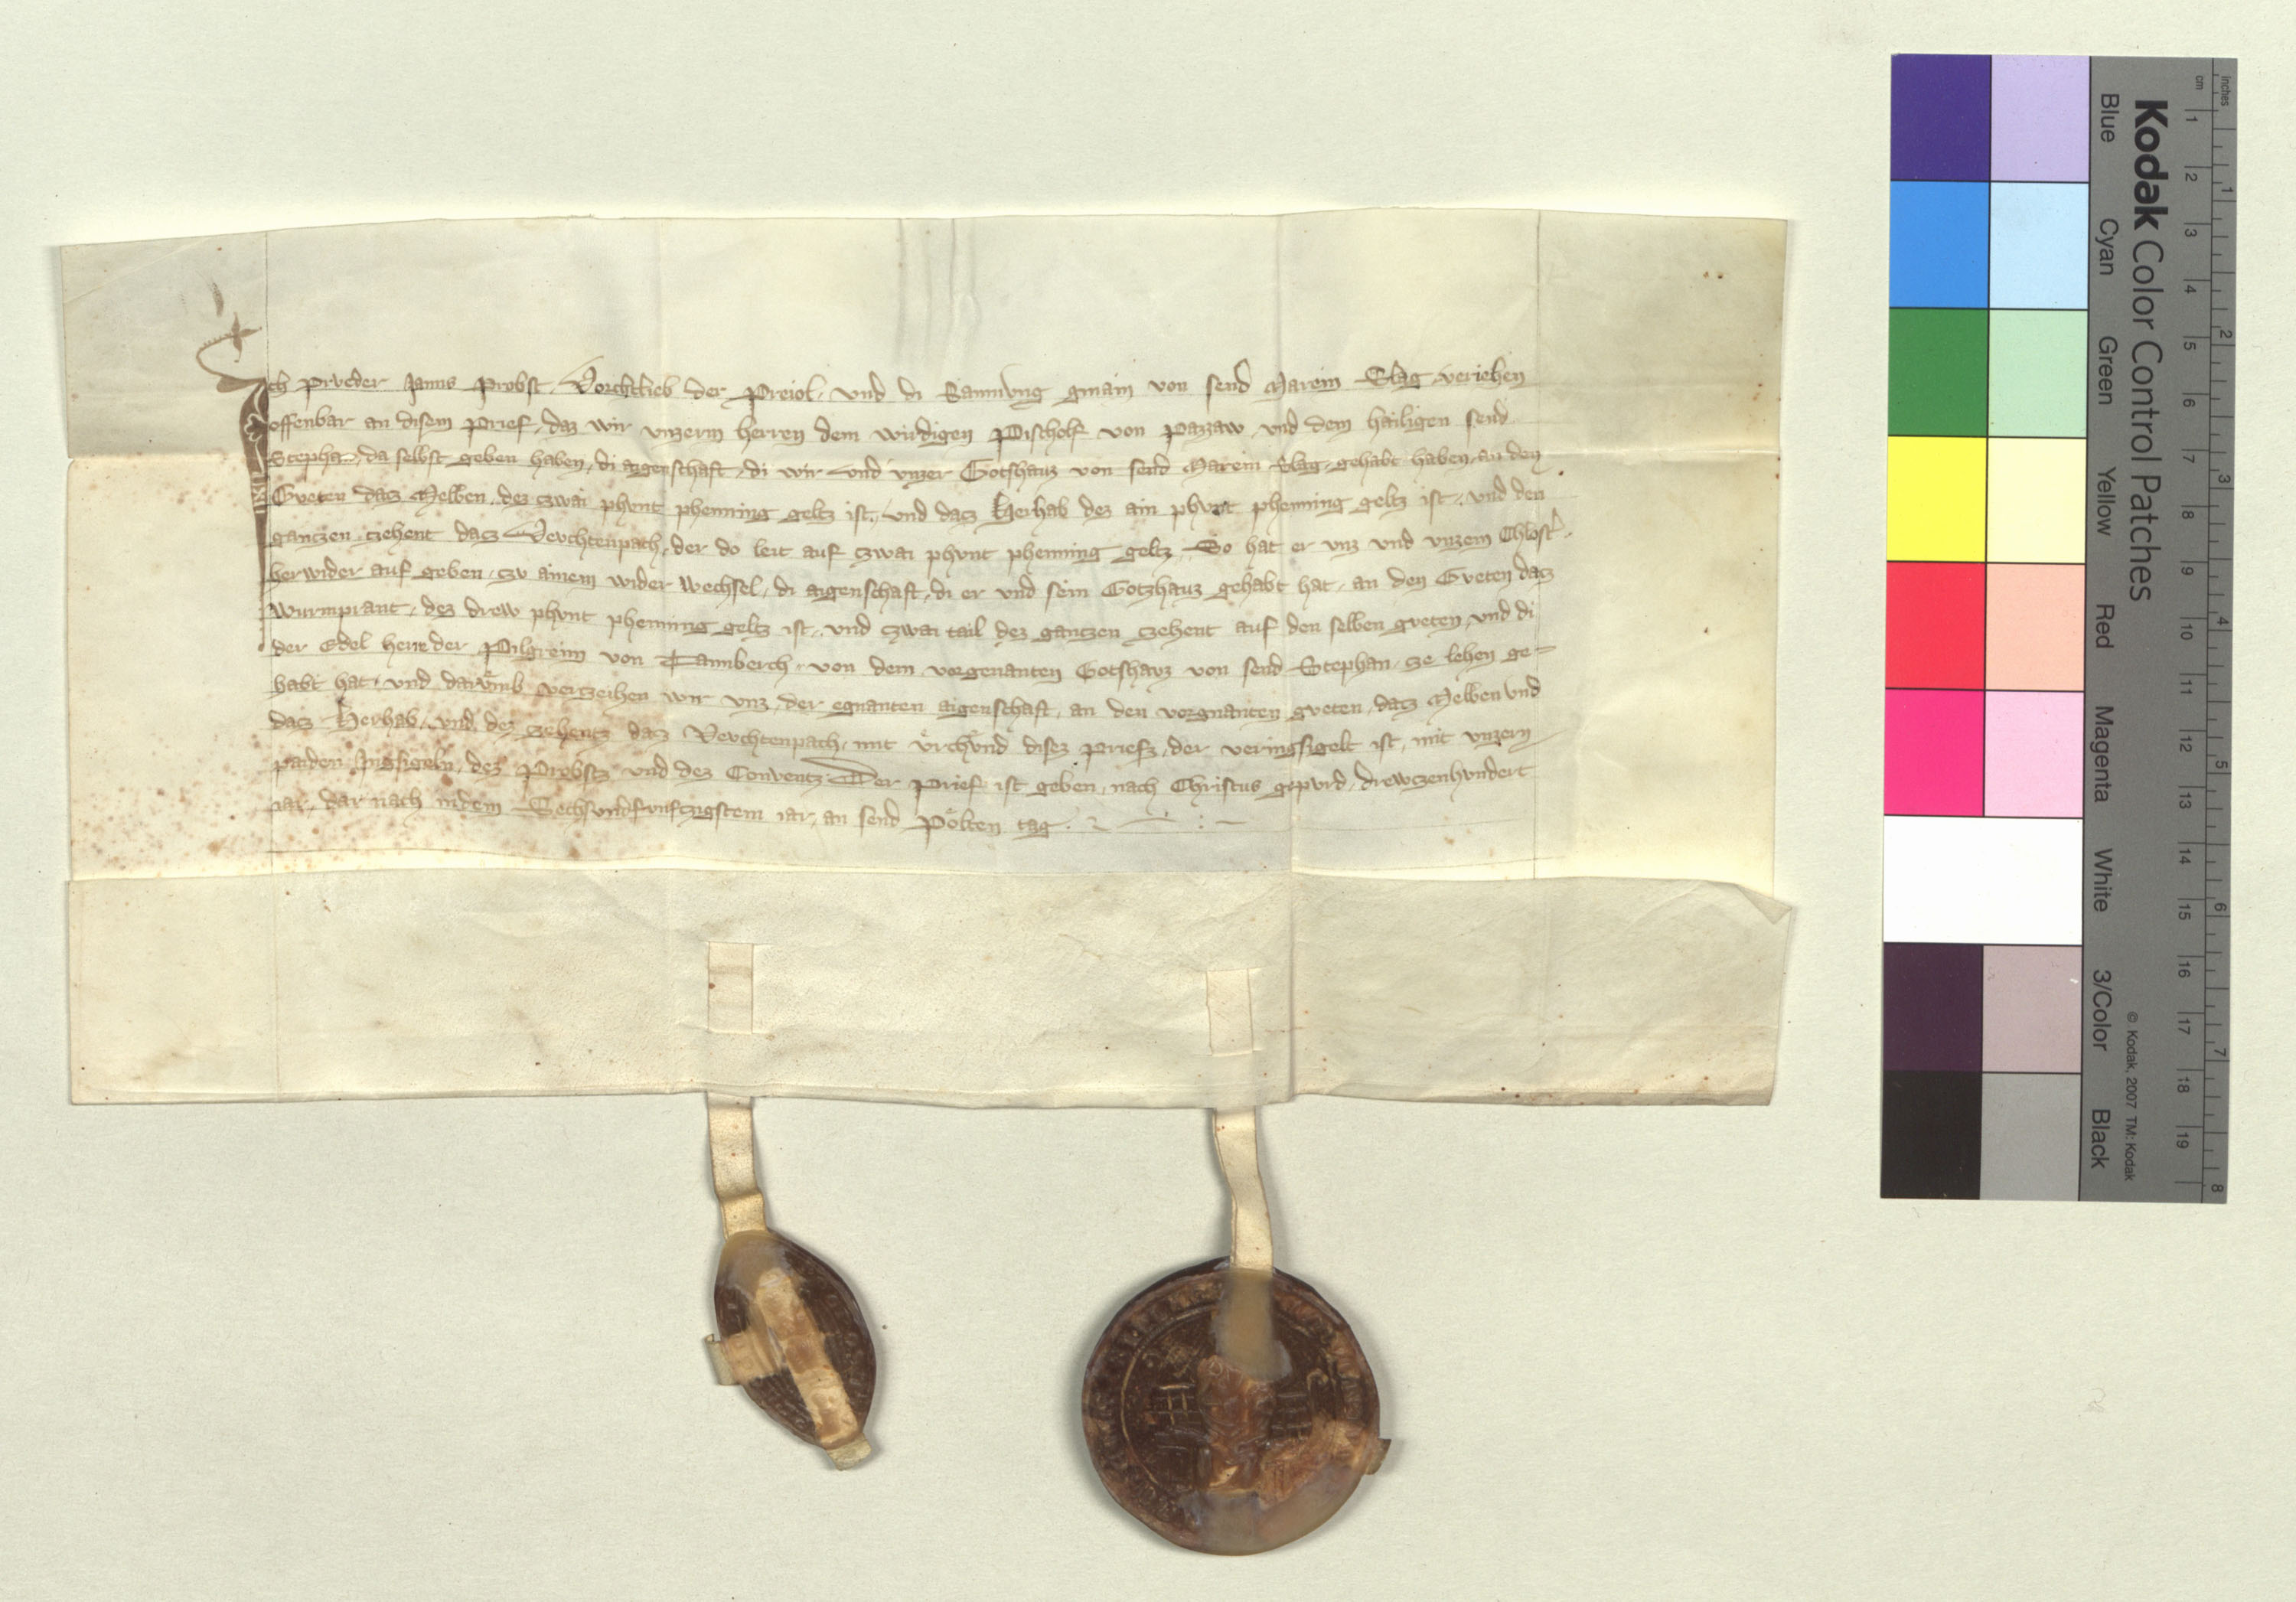 Ich Prveder Janns Probst, Vorchtlieb der Preiol, und di Samnvng gmain von send Marein Slag, veriehen
offenbar an disem Prief, daz wir vnzerm herren dem wirdigen Pischolf von Pazzaw, und dem hailigen send
Stephan, da selbst geben haben, di aigenschaft, di wir und vnzer Gotshauz von send Marein Slag, gehabt haben, an den
Gveten dacz Melben, dez czwai phvnt phenning geltz ist, und dacz Herhab dez ain phvnt phenning geltz ist, und den
ganczen czehent dacz Vevchtenpach, der do leit auf czwai phvnt phenning geltz, So hat er vnz und vnzem Chlostr
herwider auf geben, zv ainem wider wechsel, di aigenschaft, di er und sein Gotzhauz gehabt hat, an den Gveten dacz
Wurmprant, dez drew phvnt phenning geltz ist, und czwai tail dez ganczen czehent auf den selben gveten, und di
der Edel herre der Pilgreim von Tannberch, von dem vorgenanten Gotshauz von send Stephan, ze lehen ge-
habt hat, und darůmb verczeihen wir vnz, der egnanten aigenschaft, an den vorgnanten gveten, dacz Melben und
dacz Herhab, und dez czehentz dacz Vevchtenpach, mit vrchvnd disez priefz, der veringsigelt ist, mit vnzern
paiden Ingsigeln, dez Probstz und dez Conventz Der Prief ist geben, nach Christus gepvrd, drewczenhvndert
iar, dar nach indem Sechsvndfvnfczigstem iar, an send Pölten tag.
Kodak Color Control Patches
Blue Cyan Green Yellow Red Magenta White 3/Color Black
© Kodak, 2007 TM: Kodak
inches 1 2 3 4 5 6 7 8
cm 1 2 3 4 5 6 7 8 9 10 11 12 13 14 15 16 17 18 19